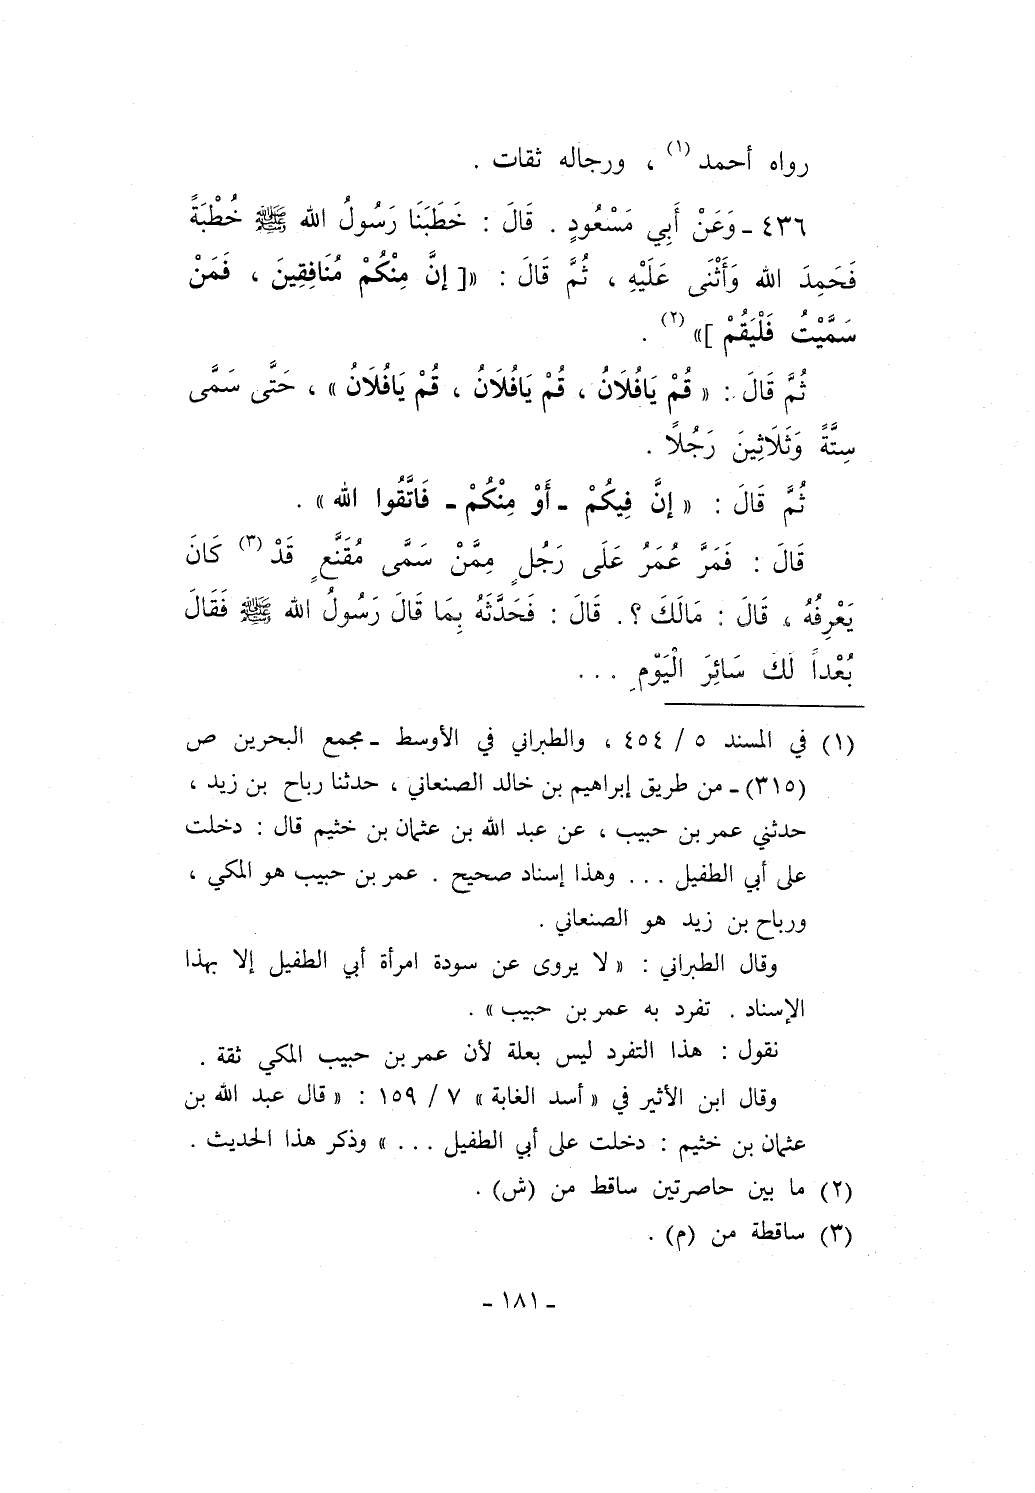 رواه أحمد (١) ، ورجاله ثقات .
٤٣٦ ـ وَعَنْ أَبِي مَسْعُودٍ . قَالَ : خَطَبَنَا رَسُولُ الله ﷺ خُطْبَةً
فَحَمِدَ الله وَأَثْنَى عَلَيْهِ ، ثُمَّ قَالَ : «[ إنَّ مِنْكُمْ مُنَافِقِينَ ، فَمَنْ
سَمَّيْتُ فَلْيَقُمْ ]» (٢) .
ثُمَّ قَالَ : « قُمْ يَافُلَانُ ، قُمْ يَافُلَانُ ، قُمْ يَافُلَانُ » ، حَتَّى سَمَّى
سِتَّةً وَثَلَاثِينَ رَجُلًا .
ثُمَّ قَالَ : « إنَّ فِيكُمْ ـ أَوْ مِنْكُمْ ـ فَاتَّقُوا الله » .
قَالَ : فَمَرَّ عُمَرُ عَلَى رَجُلٍ مِمَّنْ سَمَّى مُقَنَّعٍ قَدْ (٣) كَانَ
يَعْرِفُهُ ، قَالَ : مَالَكَ ؟. قَالَ : فَحَدَّثَهُ بِمَا قَالَ رَسُولُ الله ﷺ فَقَالَ
بُعْداً لَكَ سَائِرَ الْيَوْمِ . . .
(١) في المسند ٥ / ٤٥٤ ، والطبراني في الأوسط ـ مجمع البحرين ص
(٣١٥) ـ من طريق إبراهيم بن خالد الصنعاني ، حدثنا رباح بن زيد ،
حدثني عمر بن حبيب ، عن عبد الله بن عثمان بن خثيم قال : دخلت
على أبي الطفيل . . . وهذا إسناد صحيح . عمر بن حبيب هو المكي ،
ورباح بن زيد هو الصنعاني .
وقال الطبراني : « لا يروى عن سودة امرأة أبي الطفيل إلا بهذا
الإسناد . تفرد به عمر بن حبيب » .
نقول : هذا التفرد ليس بعلة لأن عمر بن حبيب المكي ثقة .
وقال ابن الأثير في « أسد الغابة » ٧ / ١٥٩ : « قال عبد الله بن
عثمان بن خثيم : دخلت على أبي الطفيل . . . » وذكر هذا الحديث .
(٢) ما بين حاصرتين ساقط من (ش) .
(٣) ساقطة من (م) .
ـ ١٨١ ـ